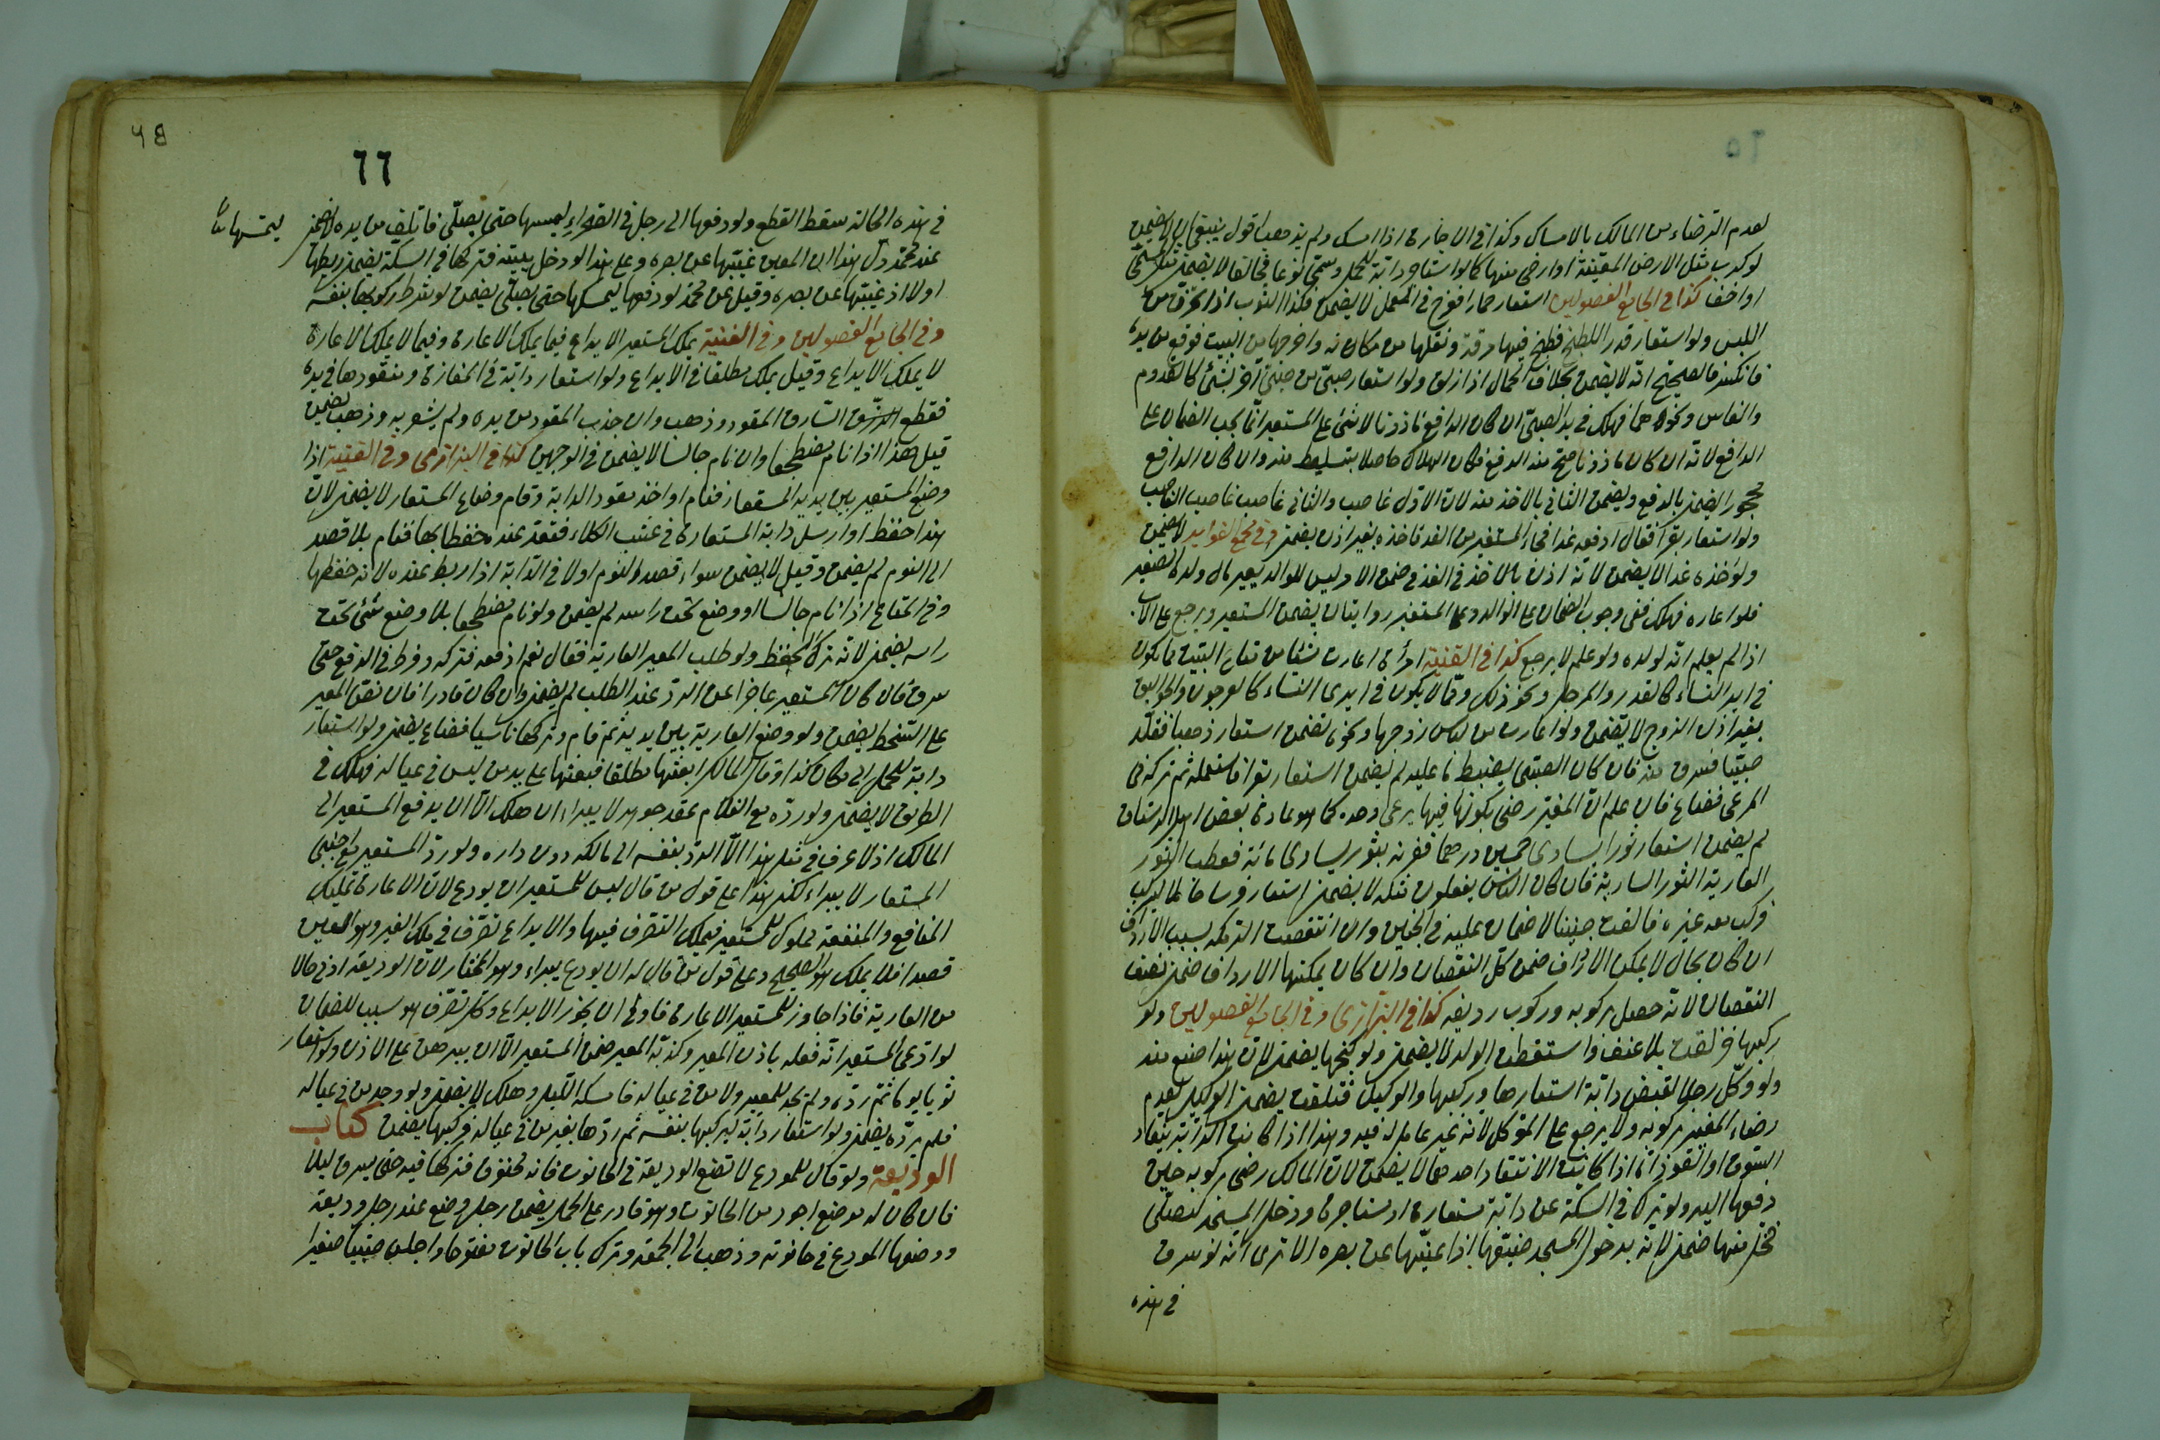 لعدم الرضاء من المالك بالامساك وكذا في الاجارة اذا امسك ولم يذهب اقول ينبغي ان لا يضمن
لو كرب مثل الارض المعينة او ارخى منها كما لو استأجر دابة للحمل وسمى نوعا فخالفا لا يضمن مثل المسمى
او اخف كذا في الجامع الفصولين استعار حمارا في العمل لا يضمن فكذا الثوب اذا تخرق من
اللبس ولو استعار قدرا للطبخ فطبخ فيها مرقة ونقلها من مكانه واخرجها من البيت فوقع من يده
فانكسر فالصحيح انه لا يضمن بخلاف الحمال اذا زلق ولو استعار صبي من صبي آخر بشئ كالقدوم
والفاس ونحوهما فهلك في يد الصبي ان كان الدافع مأذونا لا شئ على المستعير انما يجب الضمان على
الدافع لانه ان كان مأذونا صح منه الدفع فكان الهلاك حاصلا بتسليط منه وان كان الدافع
محجورا يضمن بالدفع ويضمن الثاني بالاخذ منه لان الاول غاصب والثاني غاصب غاصب الغاصب
ولو استعار بقرا فقال ادفعه غدا فجاء المستعير من الغد فأخذه بغير اذن يضمن وفي مجمع الفوائد لا يضمن
ولو اخذه غدا لا يضمن لانه اذن بالاخذ في الغد في ضمن الامر ليس للوالد يعير مال ولده الصغير
فلو اعاره فهلك ففي وجوب الضمان على الوالد وعلى المستعير روايتان يضمن المستعير ويرجع على الاب
اذا لم يعلم انه لولده ولو علم لا يرجع كذا في القنية امرأة اعارت شئا من متاع البيت مما يكون
في ايد النساء كالقدر والمرجل ونحو ذلك ومما لا يكون في ايدى النساء كالعرجون والجوالق
بغير اذن الزوج لا تضمن ولو اعارت من لباس زوجها ونحوه تضمن استعار ذهبا فقلد
صبيا فسرق منه فان كان الصبي يضبط ما عليه لم يضمن استعار بقرا فاستعمله ثم تركه في
المرعى فضاع فان علم ان المعير رضى بكونها فيها يرعى وحده كما هو عادة بعض اهل الرستاق
لم يضمن استعار ثورا يساوى خمسين درهما فقرنه بثور يساوى مائة فعطب الثور
العارية الثور السارية فان كان الناس يفعلون مثله لا يضمن استعار فرسا حاملا ليركب
فركب معه غيره فالقت جنينا لا ضمان عليه في الجنين وان انتقصت التركة بسبب الارداف
ان كان بحال لا يمكن الارداف ضمن كل النقصان وان كان يمكنها الارداف ضمن نصف
النقصان لانه حصل بركوبه وركوب رديفه كذا في البزازى وفي الجامع الفصولين ولو
ركبها فزلقت بلا عنف واستقطت الولد لا يضمن ولو كبحها يضمن لان هذا صنع منه
ولو وكل رجلا لقبض دابة استعارها وركبها والوكيل فتلفت يضمن الوكيل لعدم
رضاء المعير بركوبه ولا يرجع على الموكل لانه غير عامل له فيه وهذا اذا كانت الدابة تنقاد
السوق او القود اما اذا كانت لا تنقاد احدهما لا يضمن لان المالك رضى بركوبه حين
دفعها اليه ولو ترك في السكة عن دابة مستعارة او مستأجرة ودخل المسجد ليصلى
فخل منها ضمن لانه بدخول المسجد ضيعها اذا غيبها عن بصره الا ترى انه لو سرق
في هذه
٤٨
٦٦
في هذه الحالة سقط القطع ولو دفعها الى رجل في الصحراء ليمسها حتى يصلى فاتلف من يده لا يضمن
ليمسكها
عند محمد دل هذا ان المعين غيبتها عن بصره وعلى هذا لو دخل بيته فتركها في السكة يضمن ربطها
اولا اذ غيبتها عن بصره وقيل عن محمد لو دفعها ليمسكها حتى يصلى يضمن لو شرط ركوبها بنفسه
وفي الجامع الفصولين وفي الغنية يملك المستعير الايداع فيما يملك الاعارة وفيما لا يملك الاعارة
لا يملك الايداع وقيل يملك مطلقا في الايداع ولو استعار دابة في المفازة ومقودها في يده
فقطع السارق المقود وذهب وان جذب المقود من يده ولم يشعر به وذهب يضمن
قيل هذا اذا نام مضطجعا وان نام جالسا لا يضمن في الوجهين كذا في البزازى وفي القنية اذا
وضع المستعير بين يديه المستعار فنام او اخذ مقود الدابة وقام وضاع المستعار لا يضمن لان
هذا حفظ او ارسل دابة المستعارة في عشب الكلاء فقعد عنده حفظا بها فنام بلا قصد
الى النوم لم يضمن وقيل لا يضمن سواء قصد النوم اولا في الدابة اذا ربط عنده لانه حفظها
وفي المتاع اذا نام جالسا او وضع تحت راسه لم يضمن ولو نام مضطجعا بلا وضع شئ تحت
راسه يضمن لانه ترك الحفظ ولو طلب المعير العارية فقال نعم ادفعه فتركه وفرط في الدفع حتى
سرق فان كان المستعير عاجزا عن الرد عند الطلب لم يضمن وان كان قادرا فان نقص المعير
على التسخط يضمن ولو وضع العارية بين يديه ثم قام وتركها ناسيا فضاع يضمن ولو استعار
دابة للحمل الى مكان كذا وقال المالك ابعثها مطلقا فبعثها على يد من ليس في عياله فهلك في
الطريق لا يضمن ولو رده مع الغلام بعقد جوهر لا يبراء ان هلك الا ان يدفع المستعير الى
المالك اذ لا عرف في مثل هذا الا الرد بنفسه الى مالكه دون داره ولو رد المستعير مع اجنبي
المستعار لا يبراء لكن هذا على قول من قال ليس للمستعير ان يودع لان الاعارة تمليك
المنافع والمنفعة مملوك للمستعير فيملك التصرف فيها والايداع تصرف في ملك الغير وهو العين
قصدا فلا يملك هو الصحيح وعلى قول من قال له ان يودع يبراء وهو المختار لان الوديعة ادنى حالا
من العارية فاذا جاوز للمستعير الاعارة فاولى ان يجوز الايداع وكل تصرف هو سبب للضمان
لو ادعى المستعير انه فعله باذن المعير وكذبه المعير ضمن المستعير الا ان يبرهن على الاذن ولو استعار
ثوبا يوما ثم رده ولم يجد المعير ولا من في عياله فامسكه الليل وهلك لا يضمن ولو وجد من في عياله
فلم يرده يضمن ولو استعار دابة ليركبها بنفسه ثم ردها بغير من في عياله فركبها يضمن كتاب
الوديعة ولو قال للمودع لا تضع الوديعة في الحانوت فانه مخوف فتركها فيه حتى سرق ليلا
فان كان له موضع اجود من الحانوت وهو قادر على الحمل يضمن رجل وضع عند رجل وديعة
ووضعها المودع في حانوته وذهب الى الجمعة وترك باب الحانوت مفتوحا واجلس صبيا صغيرا